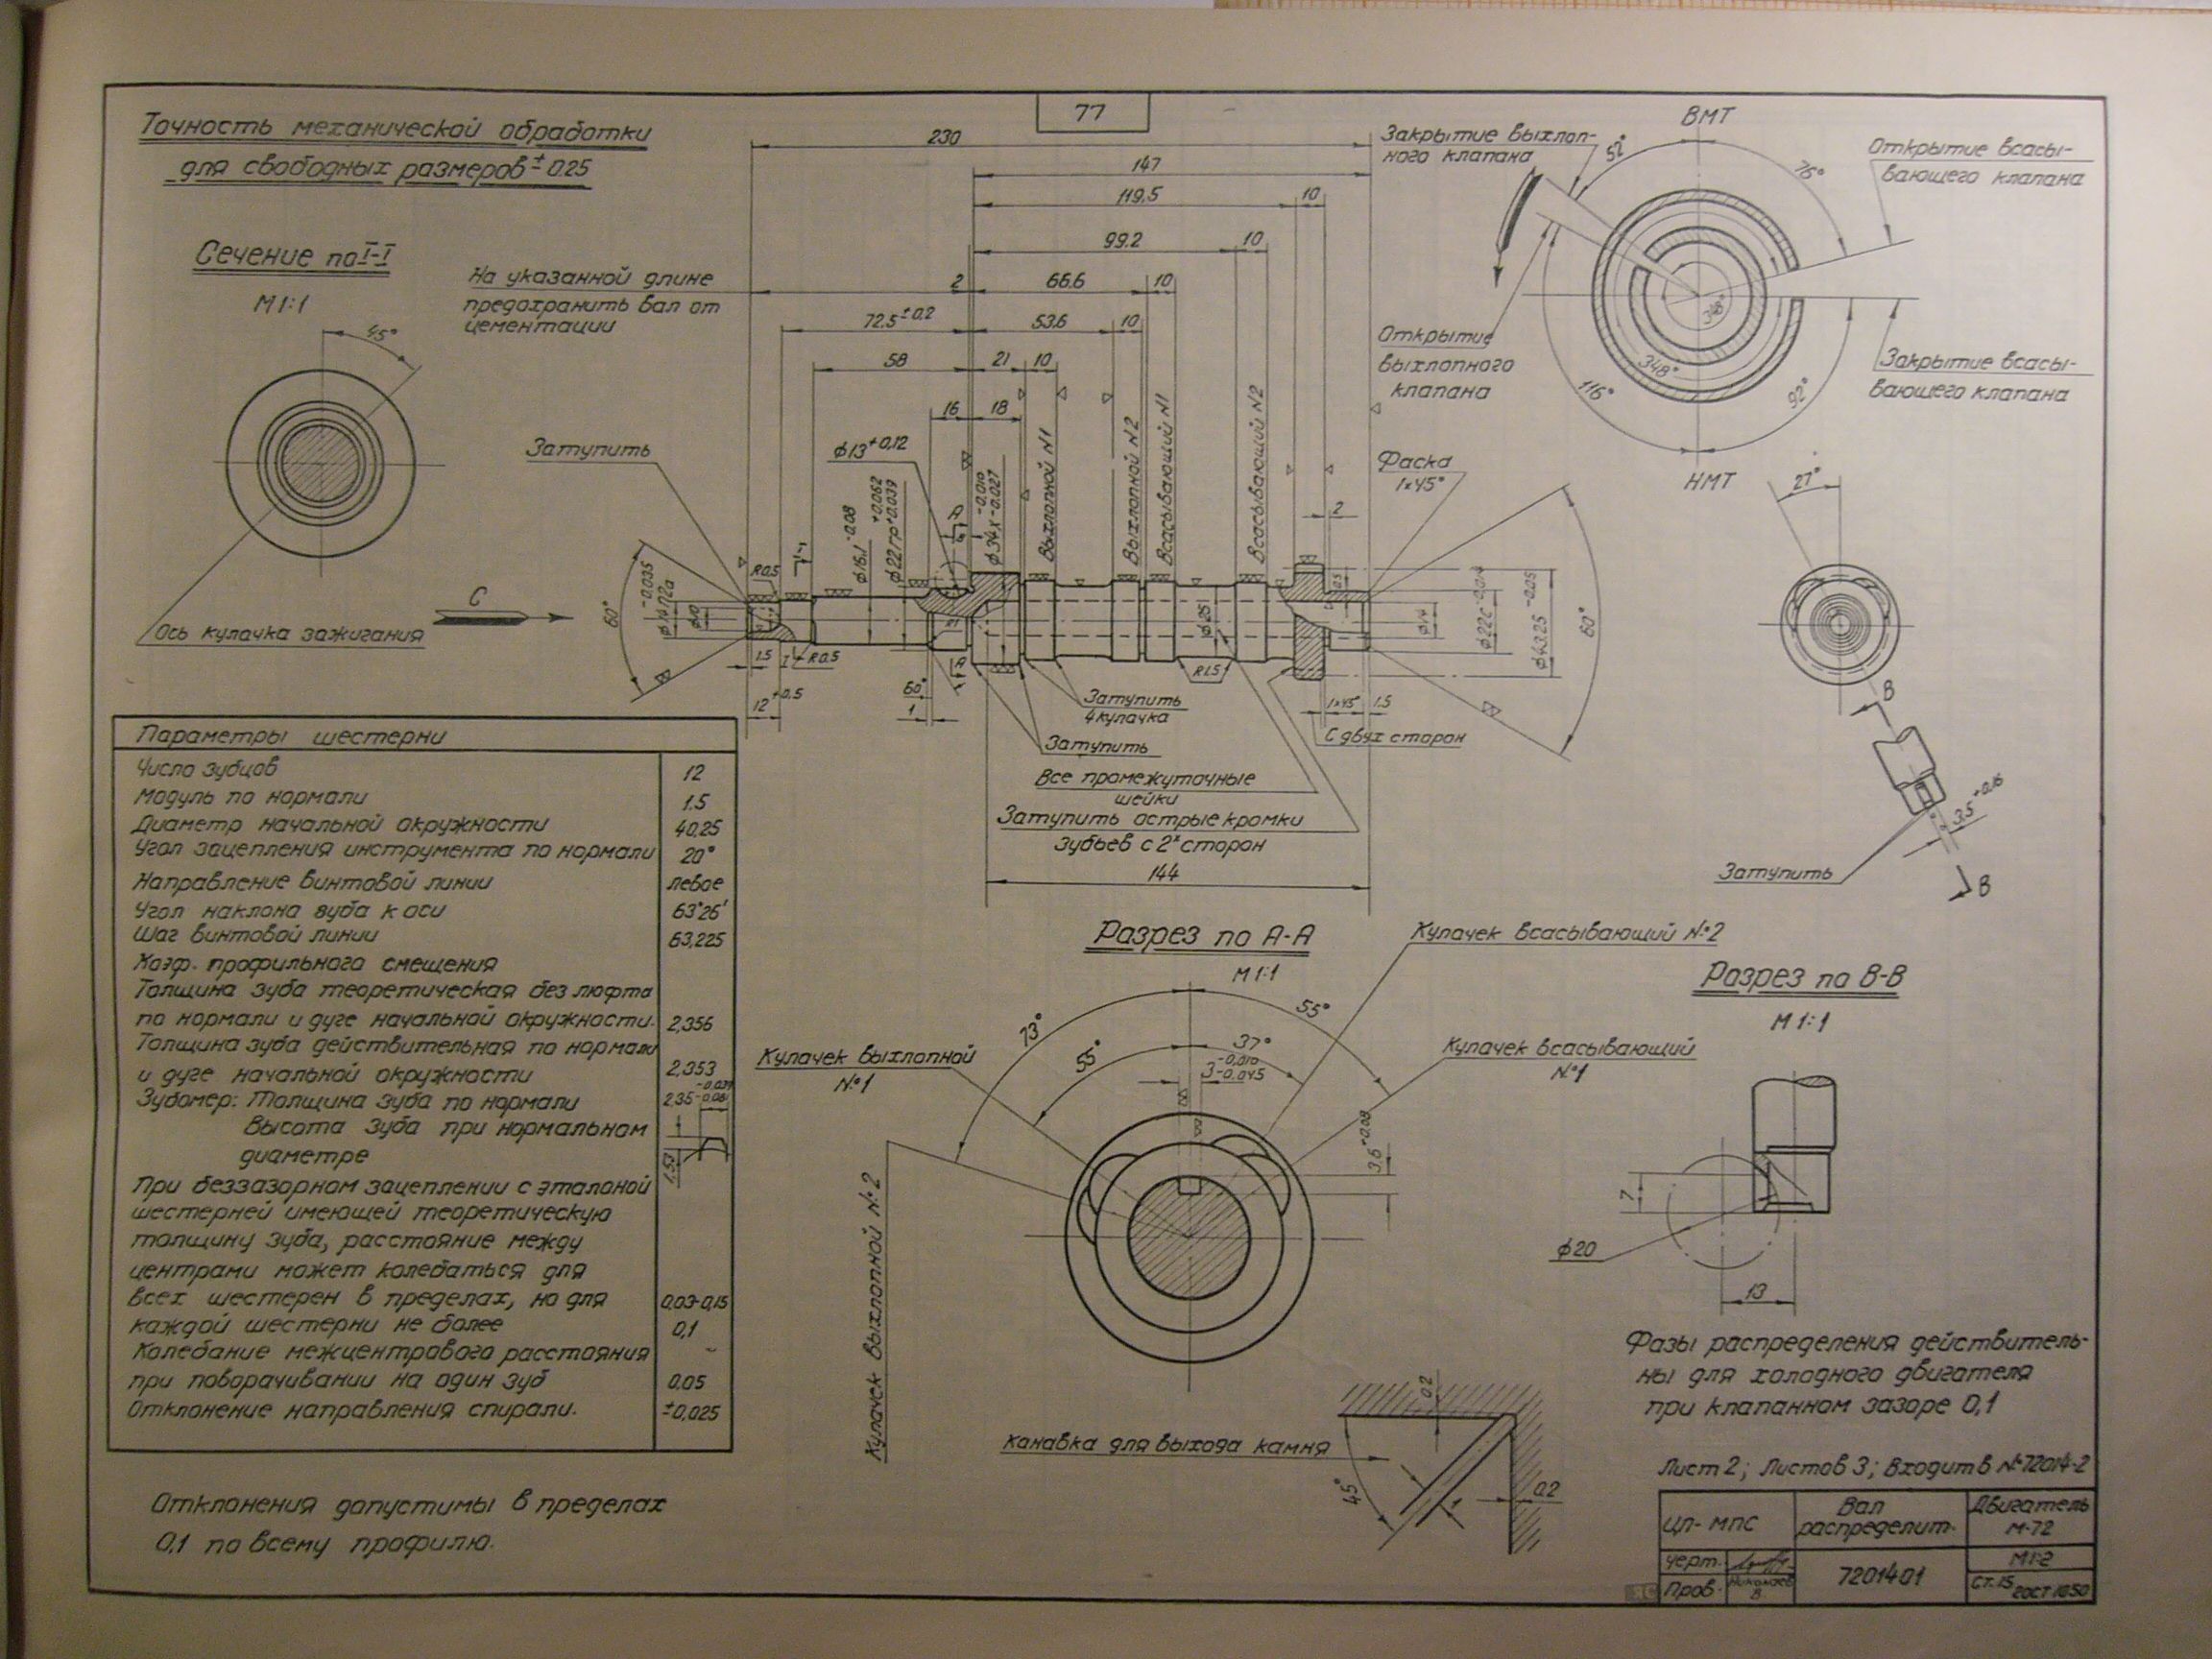 77
Точность механической обработки
для свободных размеров ± 0.25
Сечение по I-I
М 1:1
45°
Ось кулачка зажигания
На указанной длине
предохранить вал от
цементации
230
147
119.5
10
99.2
10
2
66.6
10
72.5 ±0.2
53.6
10
58
21
10
16
18
Затупить
ф13 +0.12
Выхлопной N1
Выхлопной N2
Всасывающий N1
Всасывающий N2
ф16.1 -0.08
ф34Х -0.010 -0.027
А
С
60°
R0.5
ф10
ф25
ф14
60°
2
Фаска
1×45°
1.5
I
R0.5
А
R1.5
12 +0.5
60°
1
Затупить
4 кулачка
Затупить
1×45°
1.5
С двух сторон
Все промежуточные
шейки
Затупить острые кромки
Зубьев с 2х сторон
144
ВМТ
Закрытие выхлоп-
ного клапана
52°
76°
Открытие всасы-
вающего клапана
348°
348°
Открытие
выхлопного
клапана
116°
92°
Закрытие всасы-
вающего клапана
НМТ
27°
В
3,5 +0.16
Затупить
В
Параметры шестерни
Число зубцов 12
Модуль по нормали 1.5
Диаметр начальной окружности 40,25
Угол зацепления инструмента по нормали 20°
Направление винтовой линии левое
Угол наклона зуба к оси 63°26'
Шаг винтовой линии 63,225
Коэф. профильного смещения
Толщина зуба теоретическая без люфта
по нормали и дуге начальной окружности. 2,356
Толщина зуба действительная по нормали
и дуге начальной окружности 2,353
Зубомер: Толщина зуба по нормали 2.35
Высота зуба при нормальном
диаметре 1,53
При беззазорном зацеплении с эталоной
шестерней имеющей теоретическую
толщину зуба, расстояние между
центрами может колебаться для
всех шестерен в пределах, но для 0,03-0,15
каждой шестерни не более 0,1
Колебание межцентрового расстояния -
при поворачивании на один зуб 0.05
Отклонение направления спирали. ±0,025
Отклонения допустимы в пределах
0,1 по всему профилю.
Разрез по А-А
М 1:1
73°
55°
55°
37°
3 -0,010 -0.045
Кулачек всасывающий №2
Кулачек выхлопной
№1
Кулачек всасывающий
№1
Кулачек выхлопной №2
Разрез по В-В
М 1:1
7
ф20
13
Канавка для выхода камня
45°
0.2
0.2
Фазы распределения действитель-
ны для холодного двигателя
при клапанном зазоре 0,1
Лист 2; Листов 3; Входит в №72014-2
ЦП-МПС
Вал
распределит.
Двигатель
М-72
Черт.
Пров.
7201401
М1:2
Ст.15 ГОСТ 1050